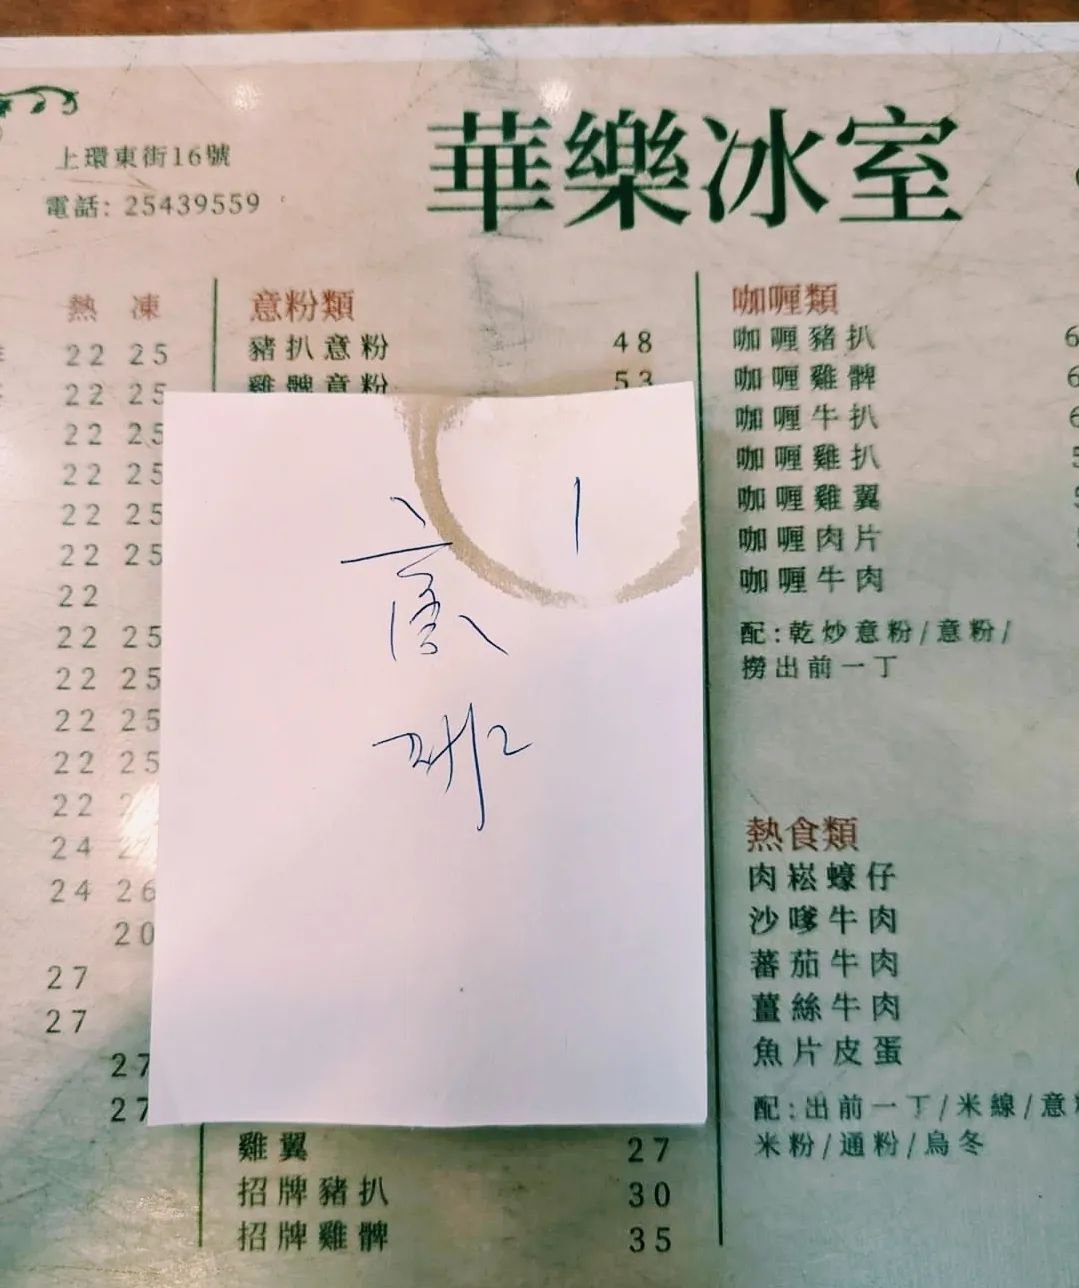 上環東街16號
電話: 25439559
華樂冰室
熱 凍
22 25
22 25
22 25
22 25
22 25
22 25
22
22 25
22 25
22 25
22 25
22
24
24 26
20
27
27
27
27
意粉類
豬扒意粉 48
雞髀意粉 53
雞翼 27
招牌豬扒 30
招牌雞髀 35
咖喱類
咖喱豬扒 6
咖喱雞髀 6
咖喱牛扒 6
咖喱雞扒 5
咖喱雞翼 5
咖喱肉片 5
咖喱牛肉
配:乾炒意粉/意粉/
撈出前一丁
熱食類
肉崧蠔仔
沙嗲牛肉
蕃茄牛肉
薑絲牛肉
魚片皮蛋
配:出前一丁/米線/意粉
米粉/通粉/烏冬